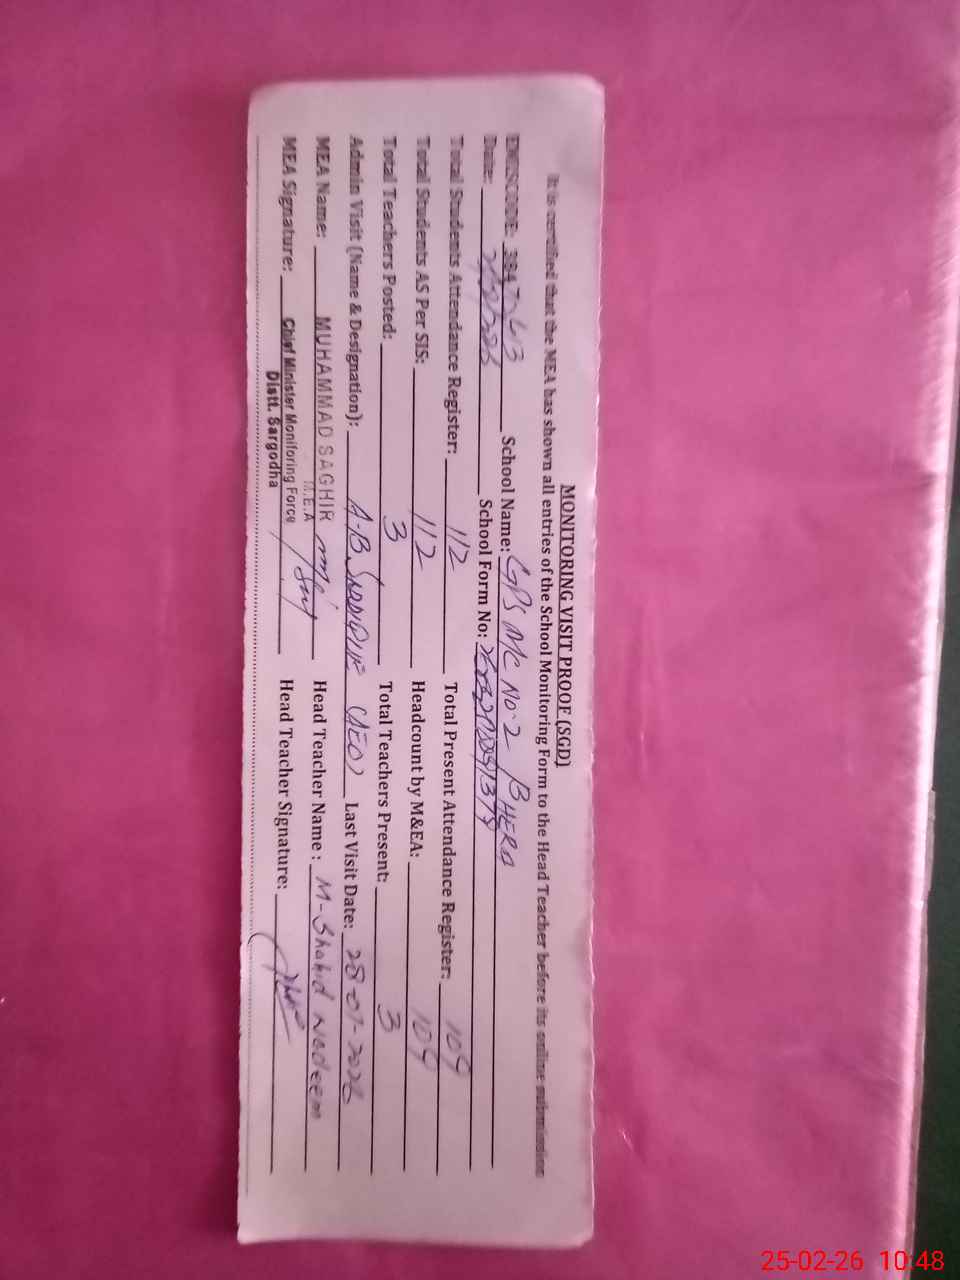 MONITORING VISIT PROOF (SGD)
It is certified that the MEA has shown all entries of the School Monitoring Form to the Head Teacher before its online submission
EMISCODE: 384 School Name: GPS MC NO.2 BHERA
Date: School Form No:
Total Students Attendance Register: 112 Total Present Attendance Register: 109
Total Students AS Per SIS: 112 Headcount by M&EA: 109
Total Teachers Posted: 3 Total Teachers Present: 3
Admin Visit (Name & Designation): A-B SADDIQUE (AEO) Last Visit Date: 28-01-2026
MEA Name: MUHAMMAD SAGHIR Head Teacher Name : M-Shahid Nadeem
M.E.A
MEA Signature: Chief Minister Monitoring Force Head Teacher Signature:
Distt. Sargodha
25-02-26 10:48